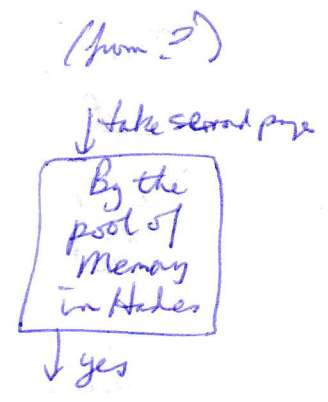 (from ?)
take second page
By the
pool of
Memory
in Hades
yes